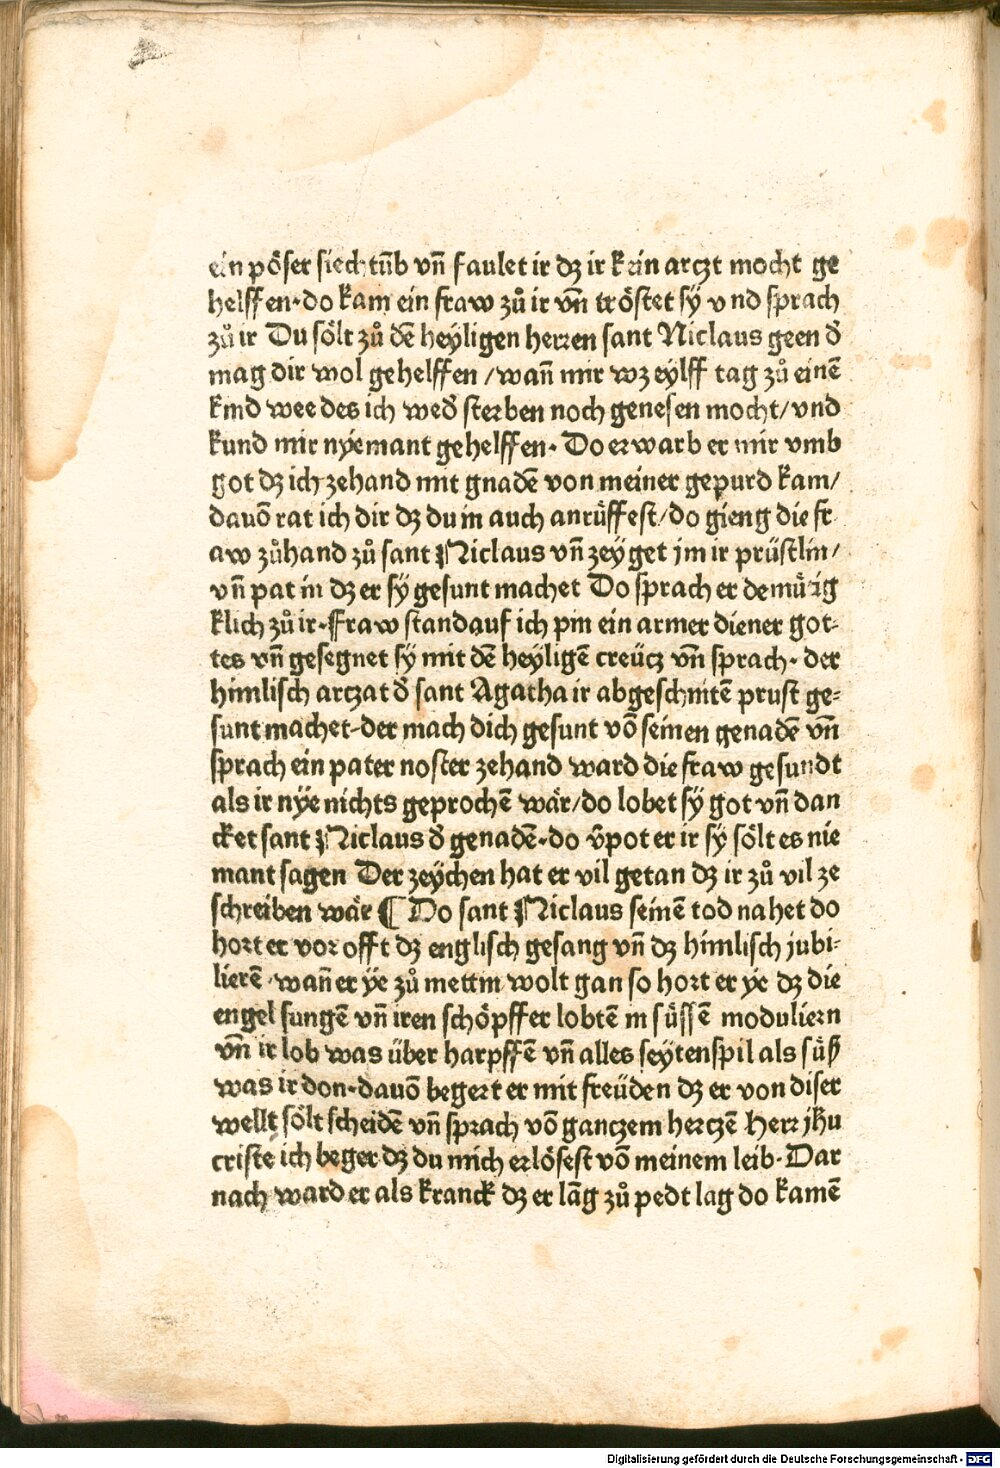 ein pöser siechtūb vn̄ faulet ir dz ir kein arczt mocht ge
helffen·do kam ein fraw zů ir vn̄ tröstet sy vnd sprach
zů ir Du sölt zů dē heyligen herren sant Niclaus geen d̄
mag dir wol gehelffen /wan̄ mir wz eylff tag zů einē
kind wee des ich wed̄ sterben noch genesen mocht/vnd
kund mir nyemant gehelffen· Do erwarb er mir vmb
got dz ich zehand mit gnadē von meiner gepurd kam/
dauō rat ich dir dz du in auch anrüffest/do gieng die fr
aw zůhand zů sant Niclaus vn̄ zeyget jm ir prüstlin/
vn̄ pat in dz er sy gesunt machet Do sprach er demütig
klich zů ir·Fraw stand auf ich pin ein armer diener got⸗
tes vn̄ gesegnet sy mit dē heyligē creücz vn̄ sprach· der
himlisch arczat d̄ sant Agatha ir abgeschnitē prust ge⸗
sunt machet·der mach dich gesunt vō seinen genadē vn̄
sprach ein pater noster zehand ward die fraw gesundt
als ir nye nichts geprochē wär/do lobet sy got vn̄ dan
cket sant Niclaus d̄ genadē·do v̄pot er ir sy sölt es nie
mant sagen Der zeychen hat er vil getan dz ir zů vil ze
schreiben wär ¶ Do sant Niclaus seinē tod nahet do
hort er vor offt dz englisch gesang vn̄ dz himlisch jubi⸗
lierē·wan̄ er ye zů mettin wolt gan so hort er ye dz die
engel sungē vn̄ iren schöpffer lobtē in süssē moduliern
vn̄ ir lob was über harpffē vn̄ alles seytenspil als süß
was ir don·dauō begert er mit freüden dz er von diser
wellt sölt scheidē vn̄ sprach vō ganczem herczē Herr jhu
criste ich beger dz du mich erlösest vō meinem leib·Dar
nach ward er als kranck dz er lāg zů pedt lag do kamē
Digitalisierung gefördert durch die Deutsche Forschungsgemeinschaft - DFG